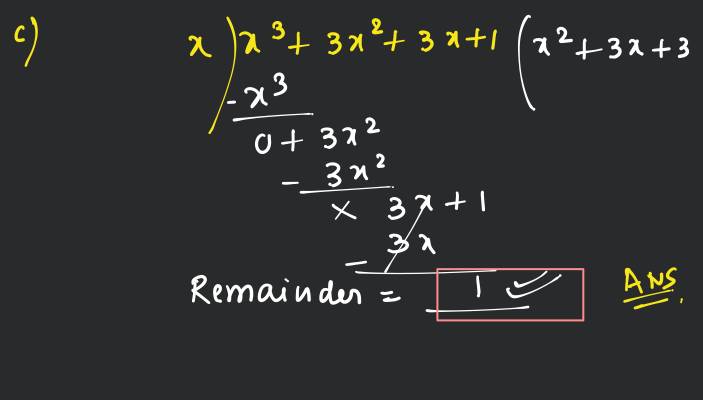 c)
x ) x³ + 3x² + 3x + 1 ( x² + 3x + 3
- x³
0 + 3x²
- 3x²
x 3x + 1
- 3x
Remainder = 1
ANS.